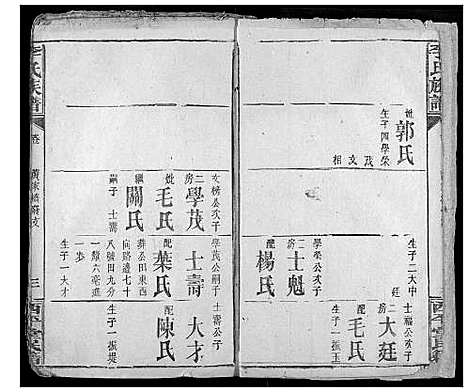 李氏族譜
妣郭氏
生子四學榮
茂文相
生子二大中
廷
學榮公次子
二房士魁
配楊氏
士福公次子
二房大廷
配毛氏
生子一振玉
文榜公次子
二房學茂
妣毛氏
繼關氏
嗣子士壽
學茂公嗣子
士壽
配葉氏
葬公田東西
向路邊七十
八號田九分
一釐六毫進
一步
生子一大才
士壽公子
大才
配陳氏
生子一振堤
李氏族譜
卷
三
西平堂